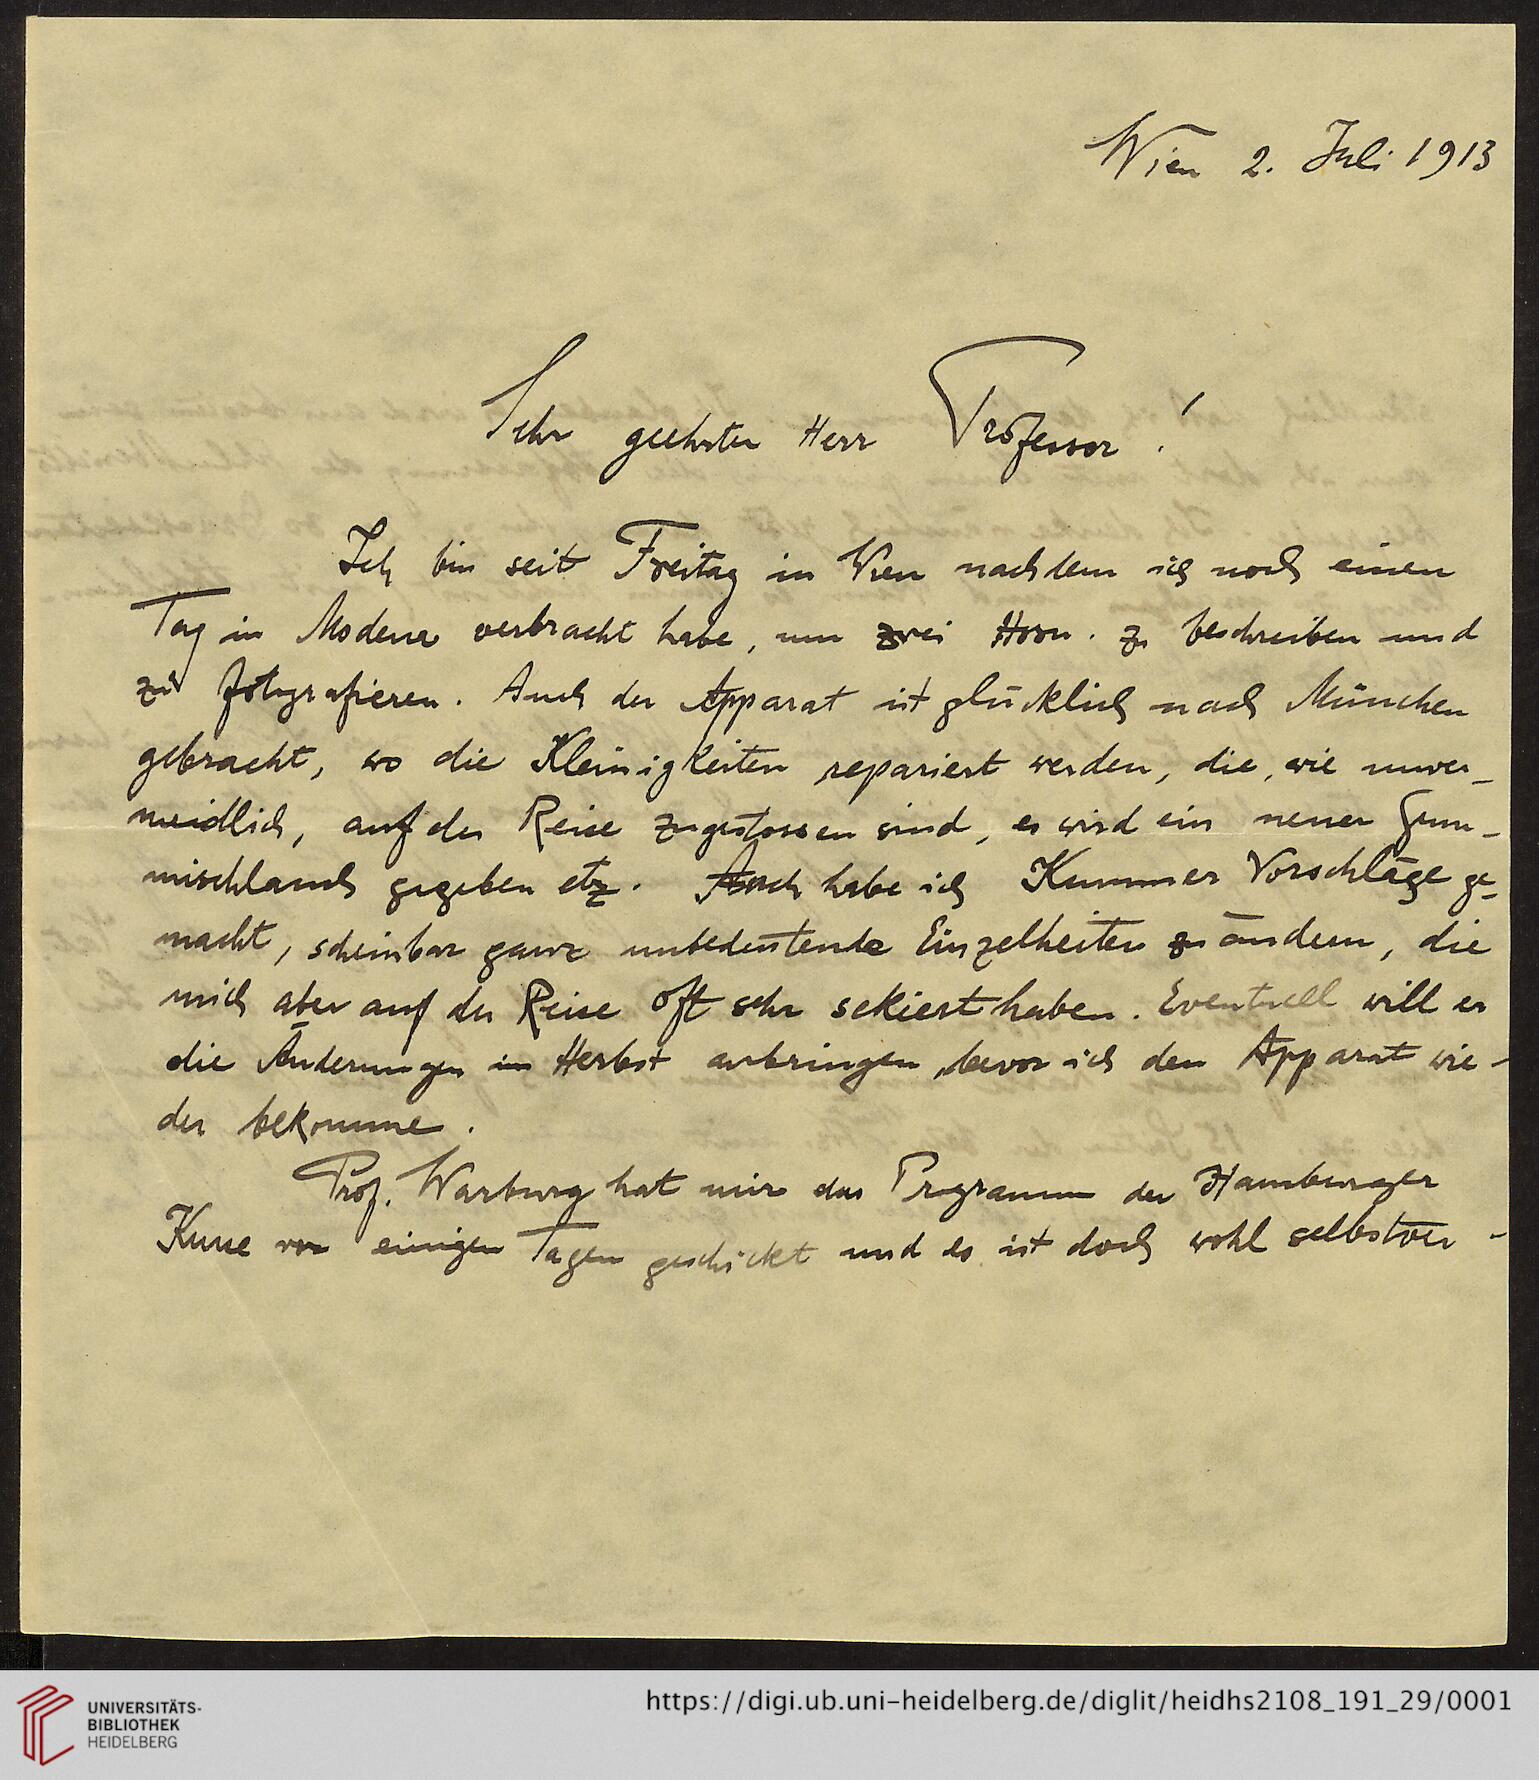 Wien 2. Juli 1913
Sehr geehrter Herr Professor!
Ich bin seit Freitag in Wien nachdem ich noch einen
Tag in Modena verbracht habe, um zwei Horn. zu beschreiben und
zu fotografieren. Auch der Apparat ist glücklich nach München
gebracht, wo die Kleinigkeiten repariert werden, die, wie unver-
meidlich, auf der Reise zugestossen sind, es wird ein neuer Gum-
mischlauch gegeben etz. Auch habe ich Kummer Vorschläge ge-
macht, scheinbar ganz unbedeutende Einzelheiten zu ändern, die
mich aber auf der Reise oft sehr sekiert haben. Eventuell will er
die Änderungen im Herbst anbringen, bevor ich den Apparat wie-
der bekomme.
Prof. Warburg hat mir das Programm der Hamburger
Kurse vor einigen Tagen geschickt und es ist doch wohl selbstver-
UNIVERSITÄTS-
BIBLIOTHEK
HEIDELBERG
https://digi.ub.uni-heidelberg.de/diglit/heidhs2108_191_29/0001